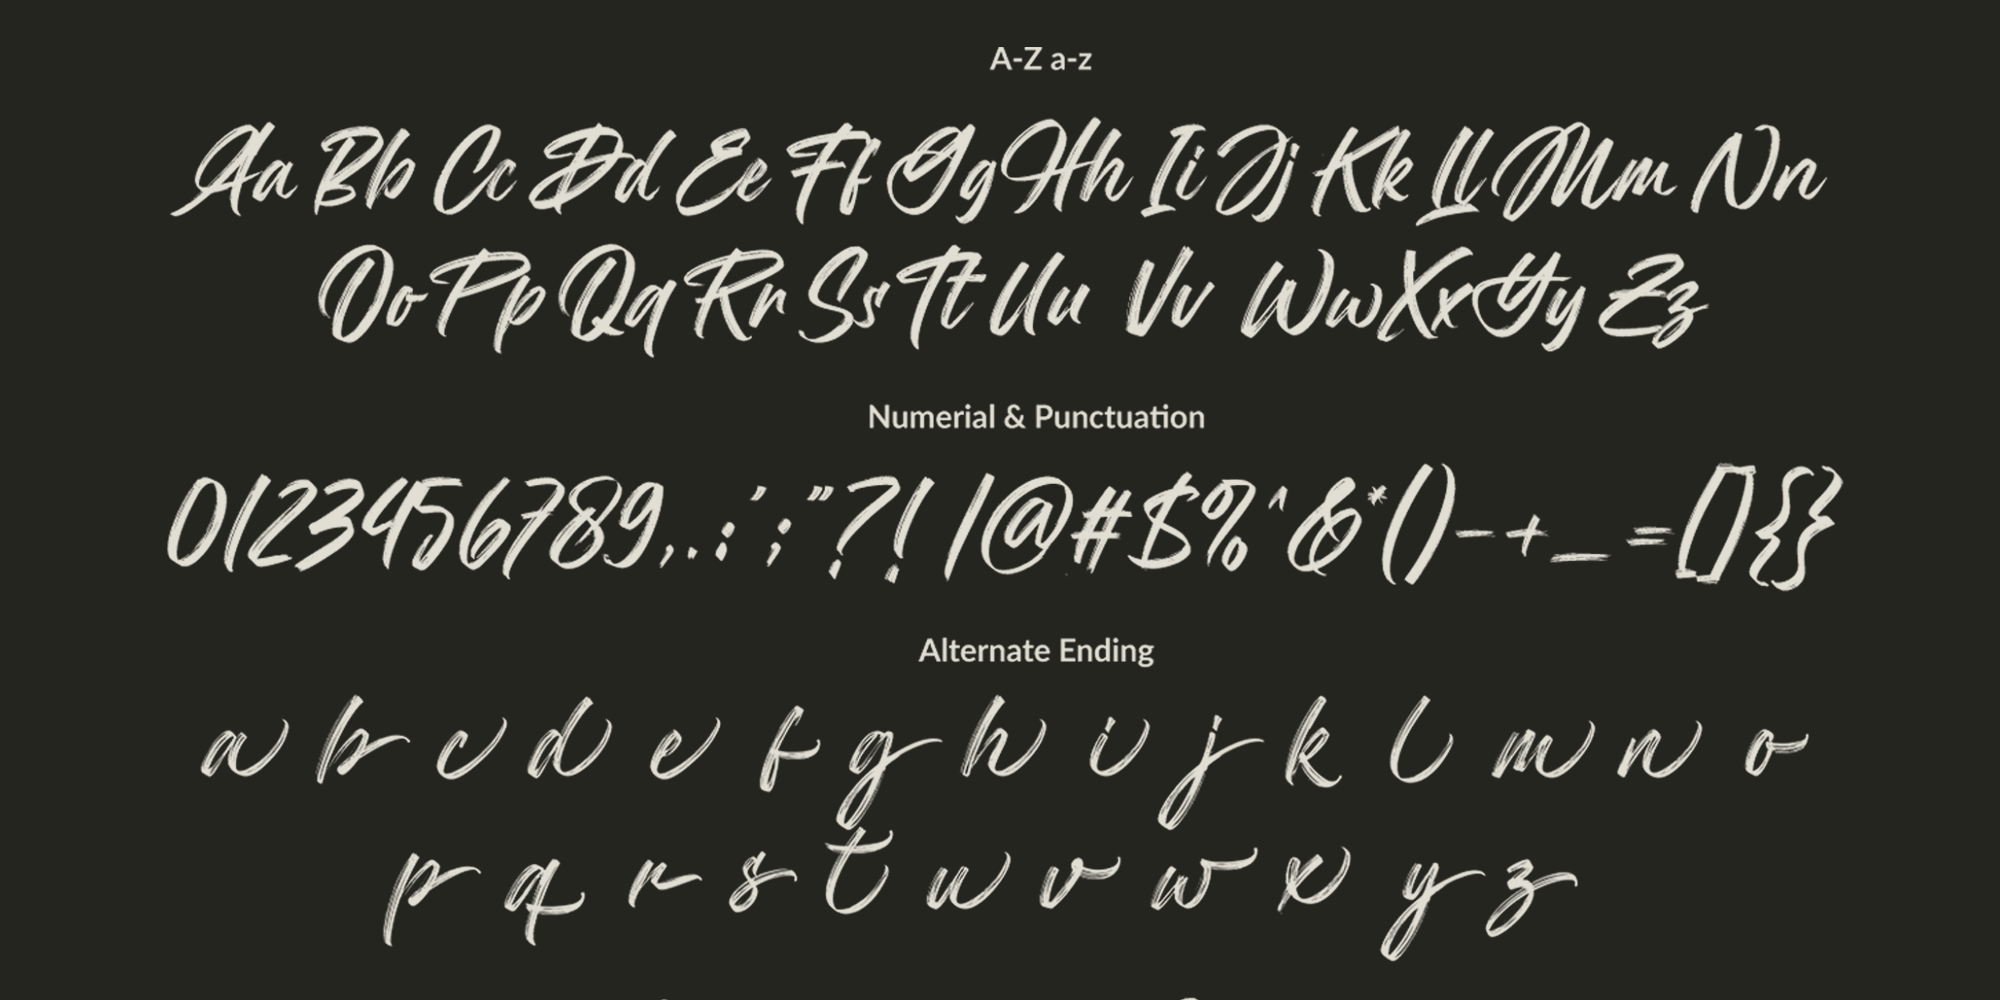 A-Z a-z
Aa Bb Cc Dd Ee Ff Gg Hh Ii Jj Kk Ll Mm Nn
Oo Pp Qq Rr Ss Tt Uu Vv Ww Xx Yy Zz
Numerial & Punctuation
0123456789,.:';"?! |@#$%^&*()-+_=[]{}
Alternate Ending
a b c d e f g h i j k l m n o
p q r s t u v w x y z